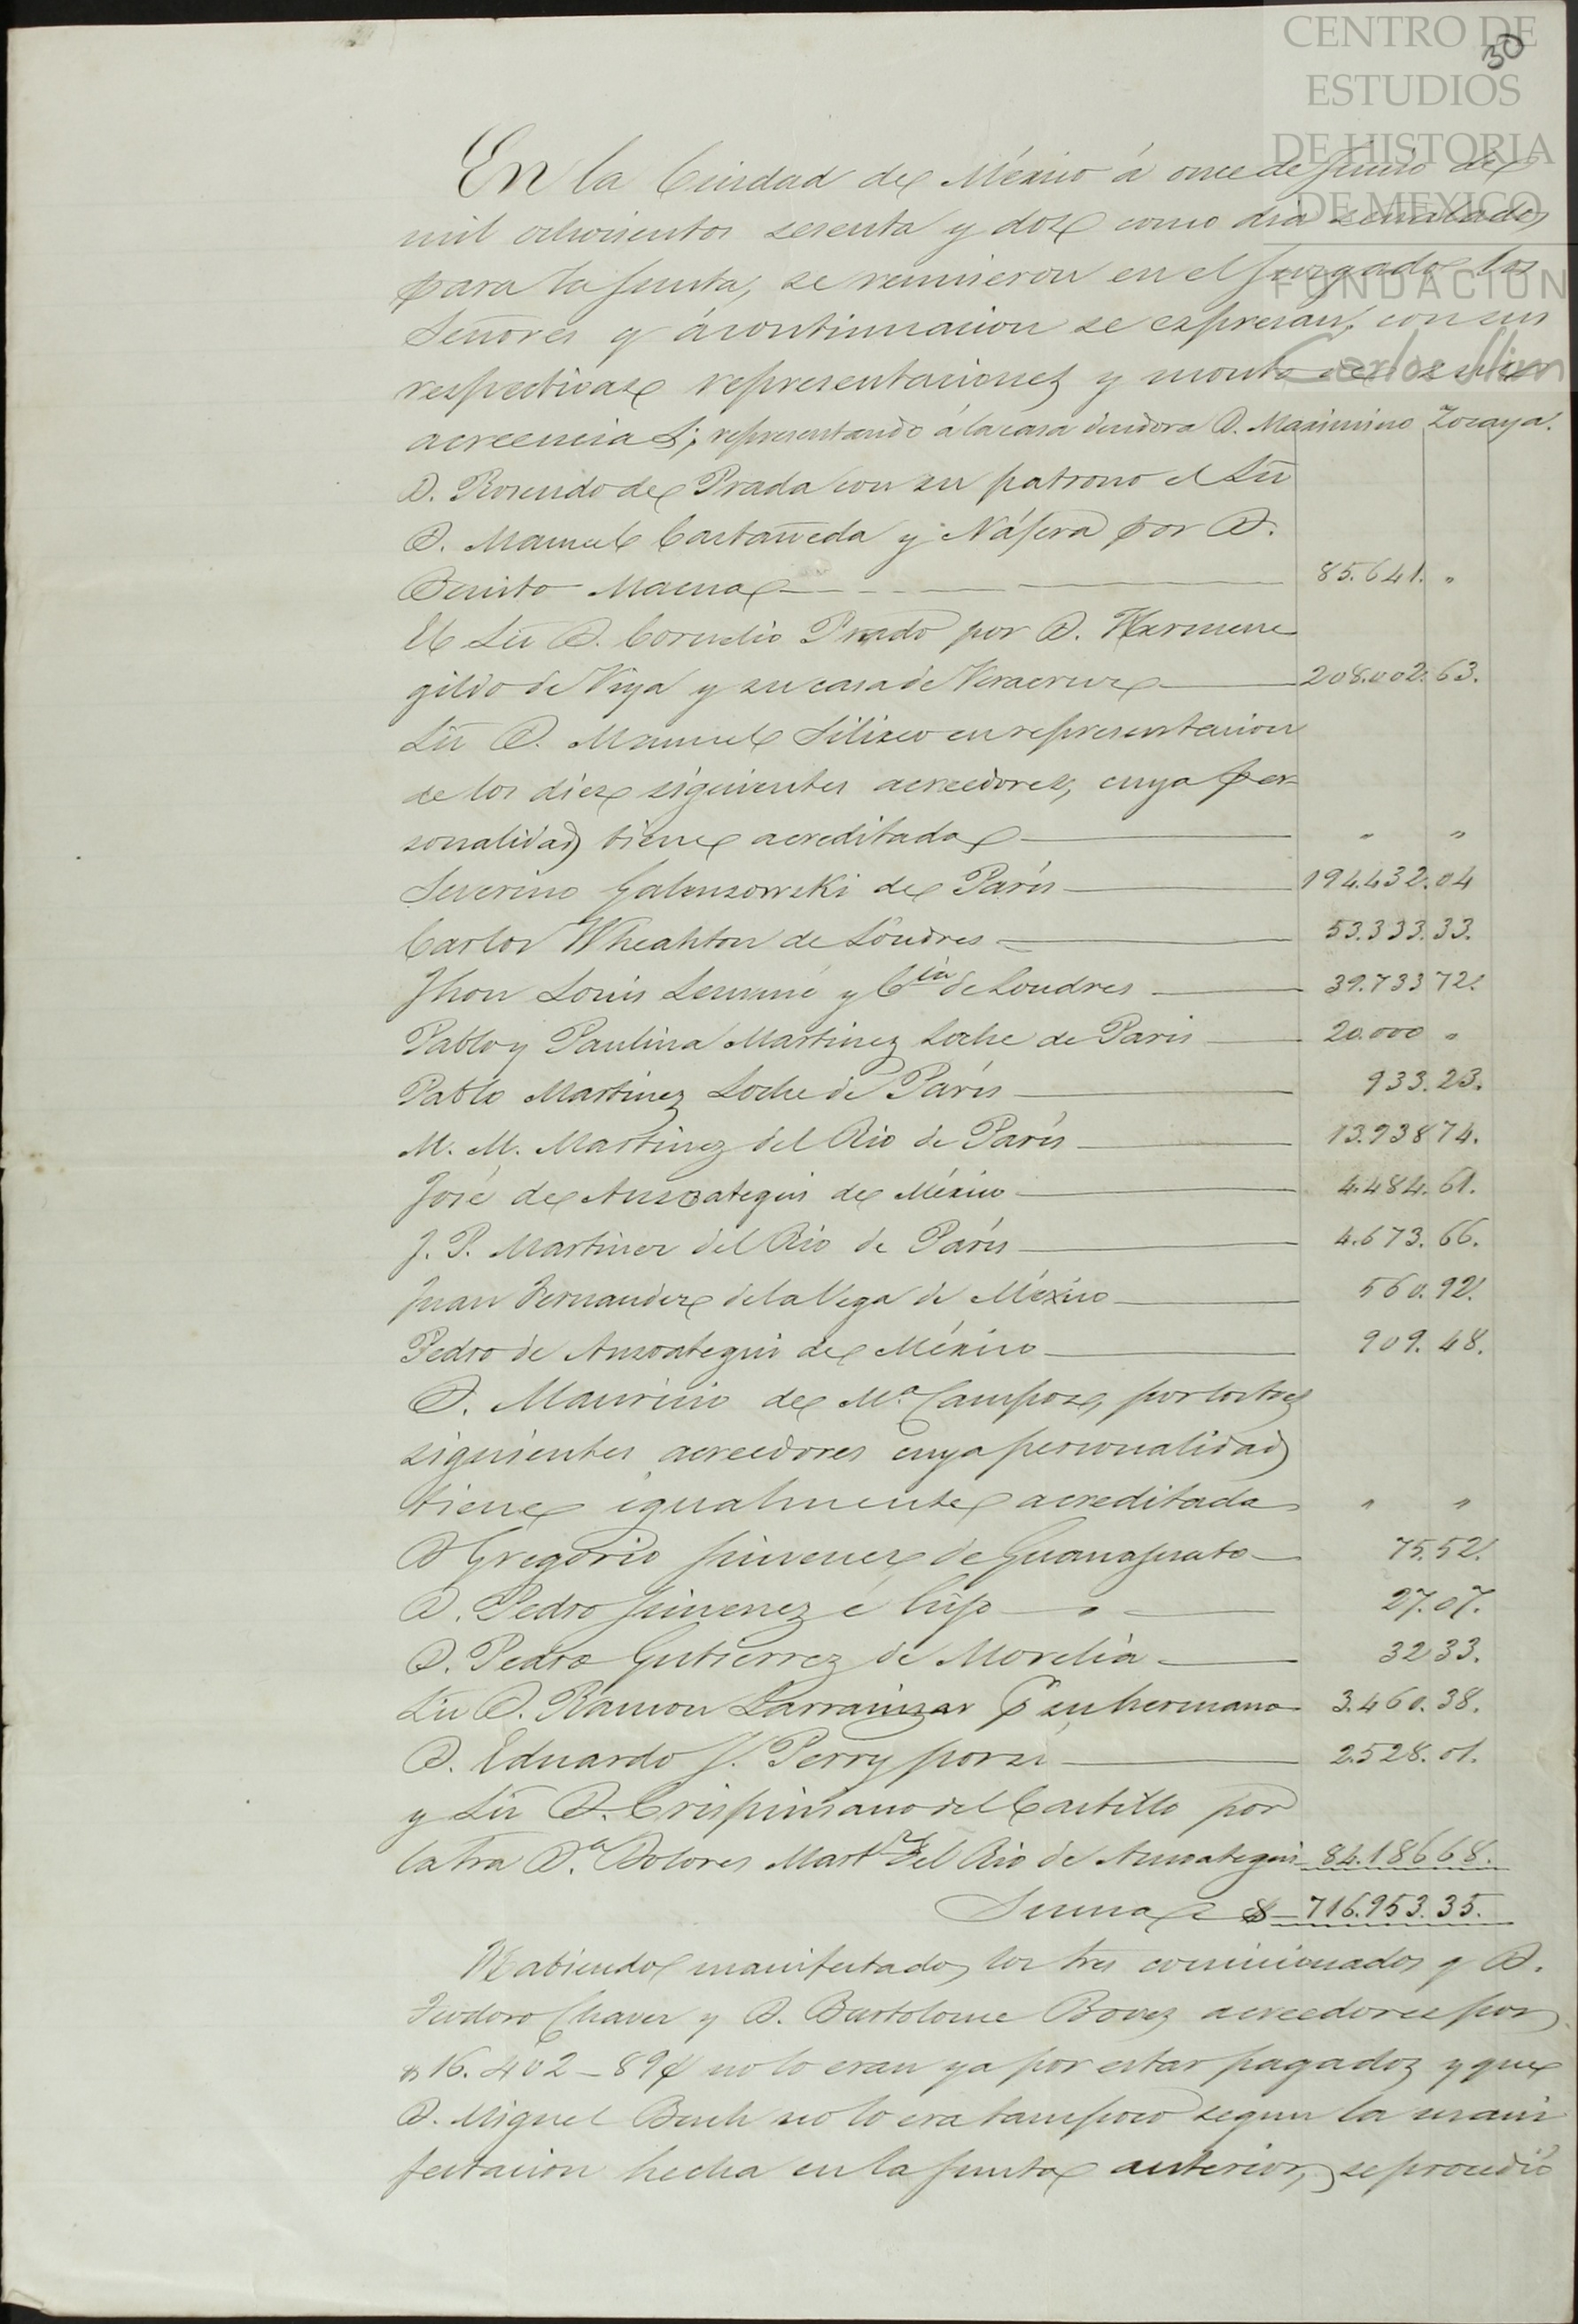 CENTRO DE
ESTUDIOS
DE HISTORIA
DE MEXICO
FUNDACION
Carlos Slim
30
En la Ciudad de México á once de Junio de
mil ochocientos sesenta y dos como dia señalado
para la junta, se reunieron en el Juzgado los
Señores q á continuacion se espresan, con sus
respectivas representaciones y monto de sus
acreencias; representando á la casa deudora D. Maximino Zocaya.
D. Rosendo de Prada con su patrono el Lic
D. Manuel Castañeda y Nájera por D.
Benito Macua 85.641. "
El Lic D. Cornelio Prado por D. Hermene
gildo de Viya y su casa de Veracruz 208.002. 63.
Lic D. Manuel Siliceo en representacion
de los diez siguientes acreedores, cuya per-
sonalidad tiene acreditada " "
Severino Galenzowski de París 194.432. 04
Carlos Wheahton de Londres 53.333. 33.
Jhon Louis Lemmé y Cia de Londres 39.733 72.
Pablo y Paulina Martinez Loche de Paris 20.000 "
Pablo Martinez Loche de París 933. 23.
M. M. Martinez del Rio de París 13.938 74.
José de Ansoategui de México 4.484. 61.
J. P. Martinez del Rio de París 4.673. 66.
Juan Fernandez de la Vega de México 560. 92.
Pedro de Ansoategui de México 909. 48.
D. Mauricio de Ma. Campos, por los tres
siguientes acreedores cuya personalidad
tiene igualmente acreditada " "
D Gregorio Jimenez de Guanajuato 75. 52.
D. Pedro Jimenez é hijo " 27. 07.
D. Pedro Gutierrez de Morelia 32 33.
Lic D. Ramon Larrainzar pr su hermano 3.460. 38.
D. Eduardo J. Perry por sí 2.528. 01.
y Lic D. Crispiniano del Castillo por
la Sra Da. Dolores Martz del Rio de Ansoategui 84.186 68.
Suma $ 716.953. 35.
Habiendo manifestado los tres comicionados q D.
Teodoro Chavez y D. Bartolome Bovez acreedores por
$16.402-89¢ no lo eran ya por estar pagados y que
D. Miguel Buch no lo era tampoco segun la mani
festacion hecha en la junta anterior, se procedió